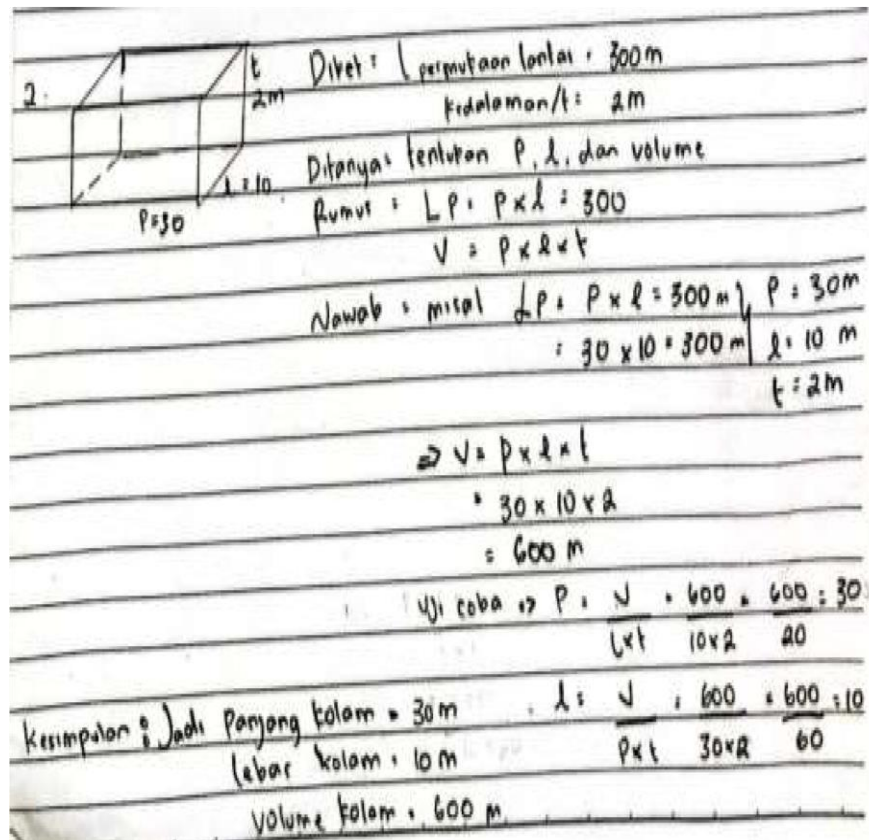 2.
t
2m
l = 10
P = 30
Diket : L permukaan lantai = 300 m
kedalaman/t = 2m
Ditanya : tentukan P, l, dan volume
Rumus : LP = P x l = 300
V = P x l x t
Jawab : misal LP = P x l = 300 m } P = 30m
= 30 x 10 = 300 m | l = 10 m
t = 2m
=> V = p x l x t
= 30 x 10 x 2
= 600 m
Uji coba => P = V / l x t = 600 / 10 x 2 = 600 / 20 = 30
l = V / P x t = 600 / 30 x 2 = 600 / 60 = 10
Kesimpulan : Jadi Panjang kolam = 30 m
lebar kolam = 10 m
Volume kolam = 600 m